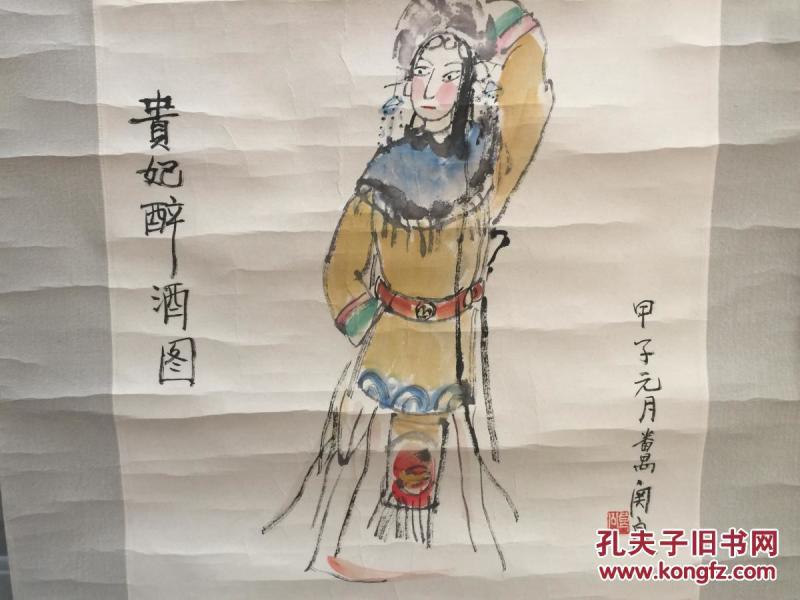 貴妃醉酒图
甲子元月
孔夫子旧书网
www.kongfz.com